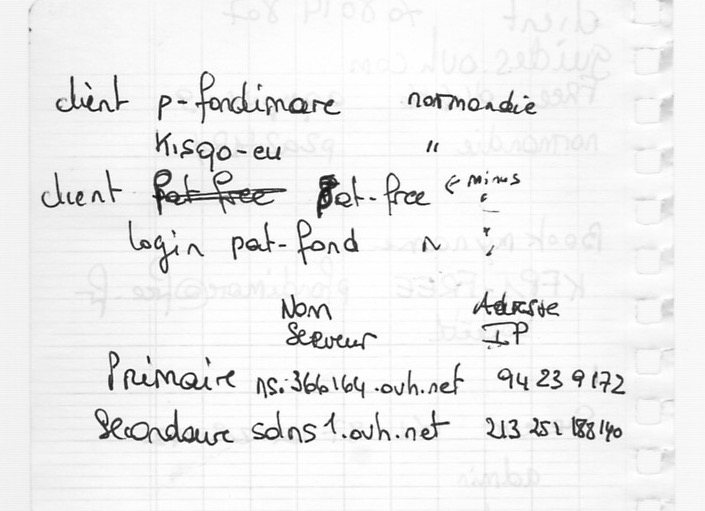 client p-fondimare normandie
K1590-eu "
client pat-free pat-free ← minus
login pat-fond "
Nom Adresse
Serveur IP
Primaire ns.366164.ovh.net 94 23 9 172
Secondaire sdns1.ovh.net 213 251 188 140